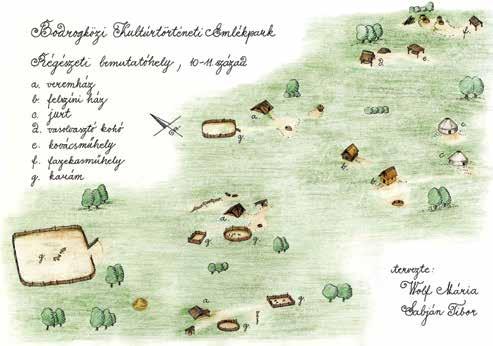 Bodrogközi Kultúrtörténeti Emlékpark
Régészeti bemutatóhely, 10-11. század
a. veremház
b. felszíni ház
c. jurt
d. vasolvasztó kohó
e. kovácsműhely
f. fazekasműhely
g. karám
f.
e.
d.
a.
g.
c.
b.
c.
b.
a.
g.
g.
g.
a.
g.
g.
tervezte:
Wolf Mária
Sabján Tibor